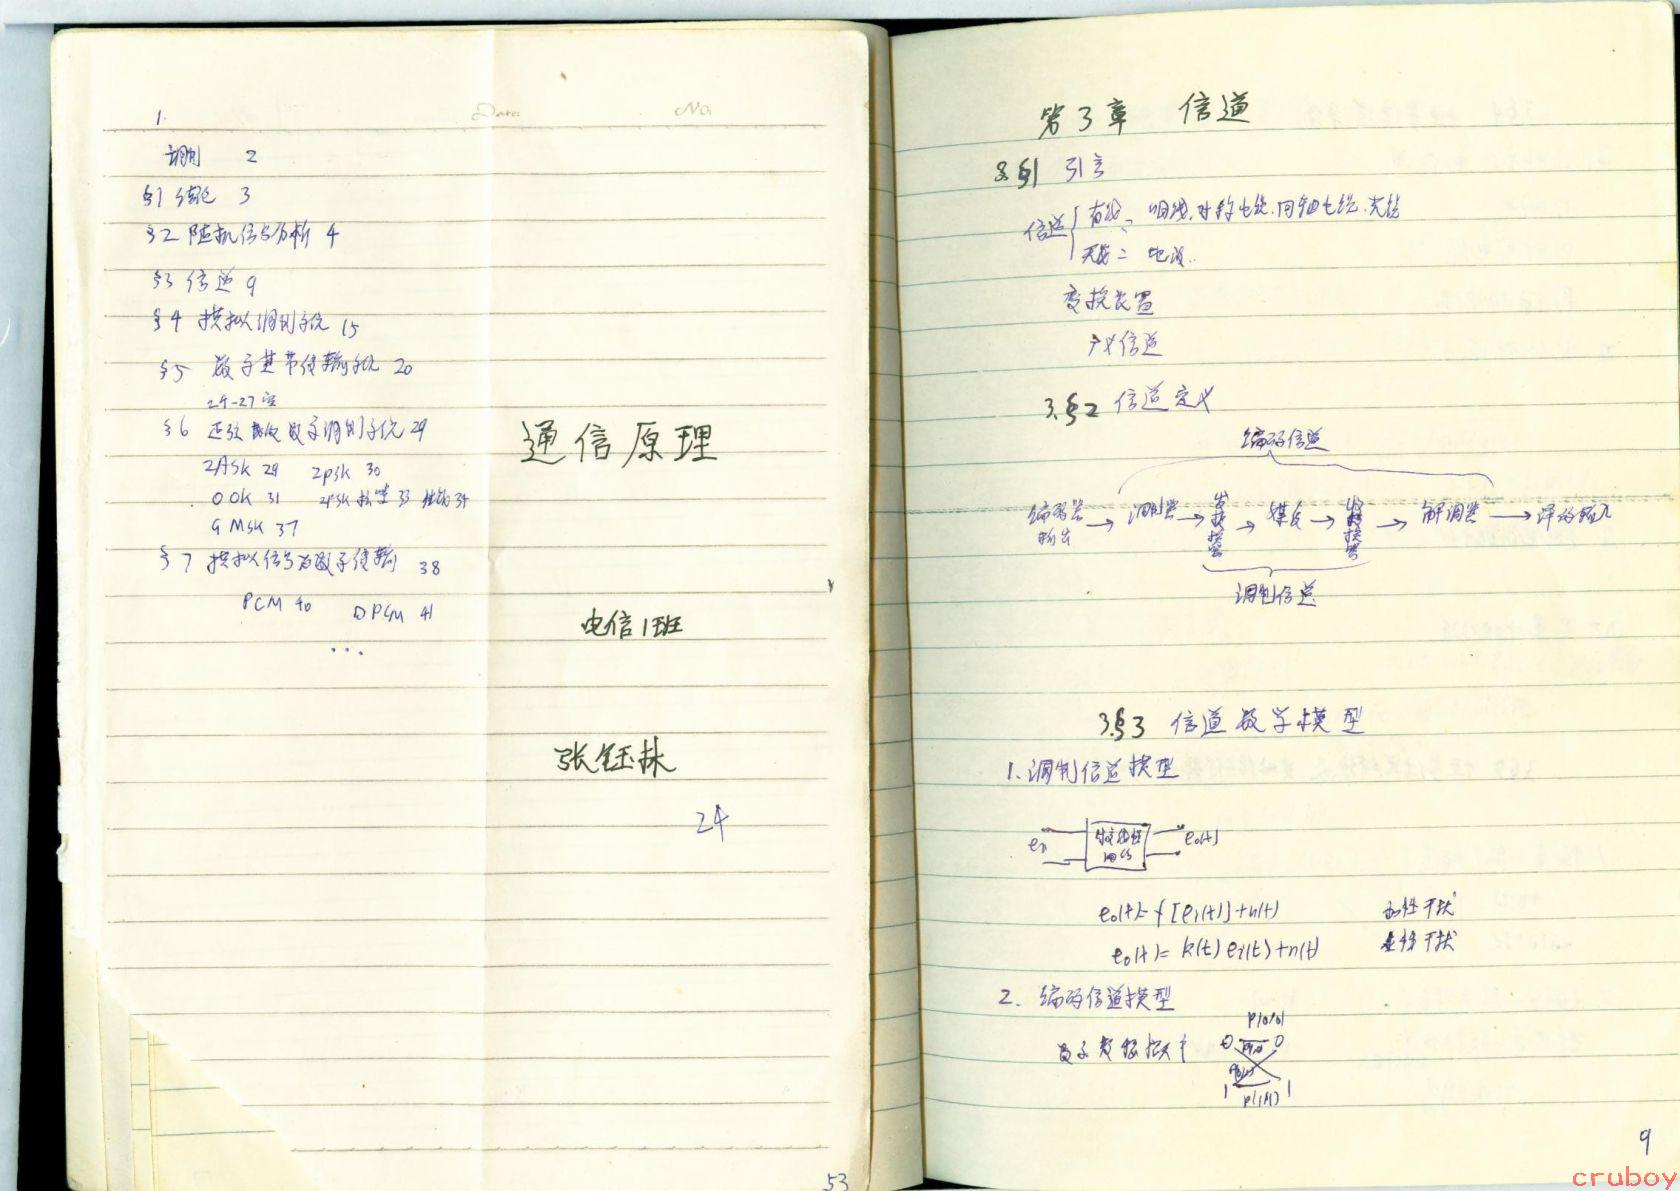 1.
Date:
No.
调制 2
§1 绪论 3
§2 随机信号分析 4
§3 信道 9
§4 模拟调制系统 15
§5 数字基带传输系统 20
24-27空
§6 正弦载波数字调制系统 29
2ASK 29 2PSK 30
OOK 31 2PSK 33 性能 34
GMSK 37
§7 模拟信号的数字传输 38
PCM 40 DPCM 41
...
通信原理
电信1班
张钰林
24
53
第3章 信道
3.§1 引言
信道 有线: 明线.对称电缆.同轴电缆.光缆
无线: 地波..
变换装置
广义信道
3.§2 信道定义
编码信道
编码器输出 → 调制器 → 发转换器 → 媒质 → 收转换器 → 解调器 → 译码输入
调制信道
3.§3 信道数学模型
1.调制信道模型
eo(t)
eo(t)=f[ei(t)]+n(t) 加性干扰
eo(t)=k(t)ei(t)+n(t) 乘性干扰
2. 编码信道模型
P(0/0)
0 0
1 1
P(1/1)
9
cruboy